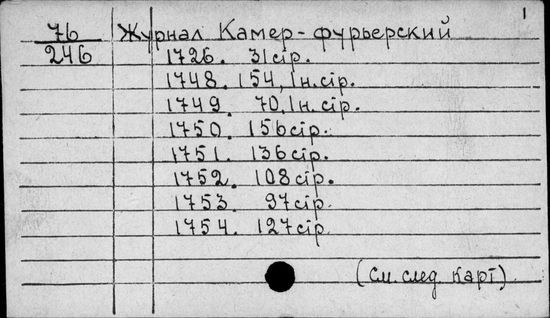 1
76 Журнал Камер-фурьерский
246 1726. 31 стр.
1748. 154, 1н. стр.
1749. 70, 1н. стр.
1750. 156 стр.
1751. 136 стр.
1752. 108 стр.
1753. 97 стр.
1754. 127 стр.
(См. след. карт)